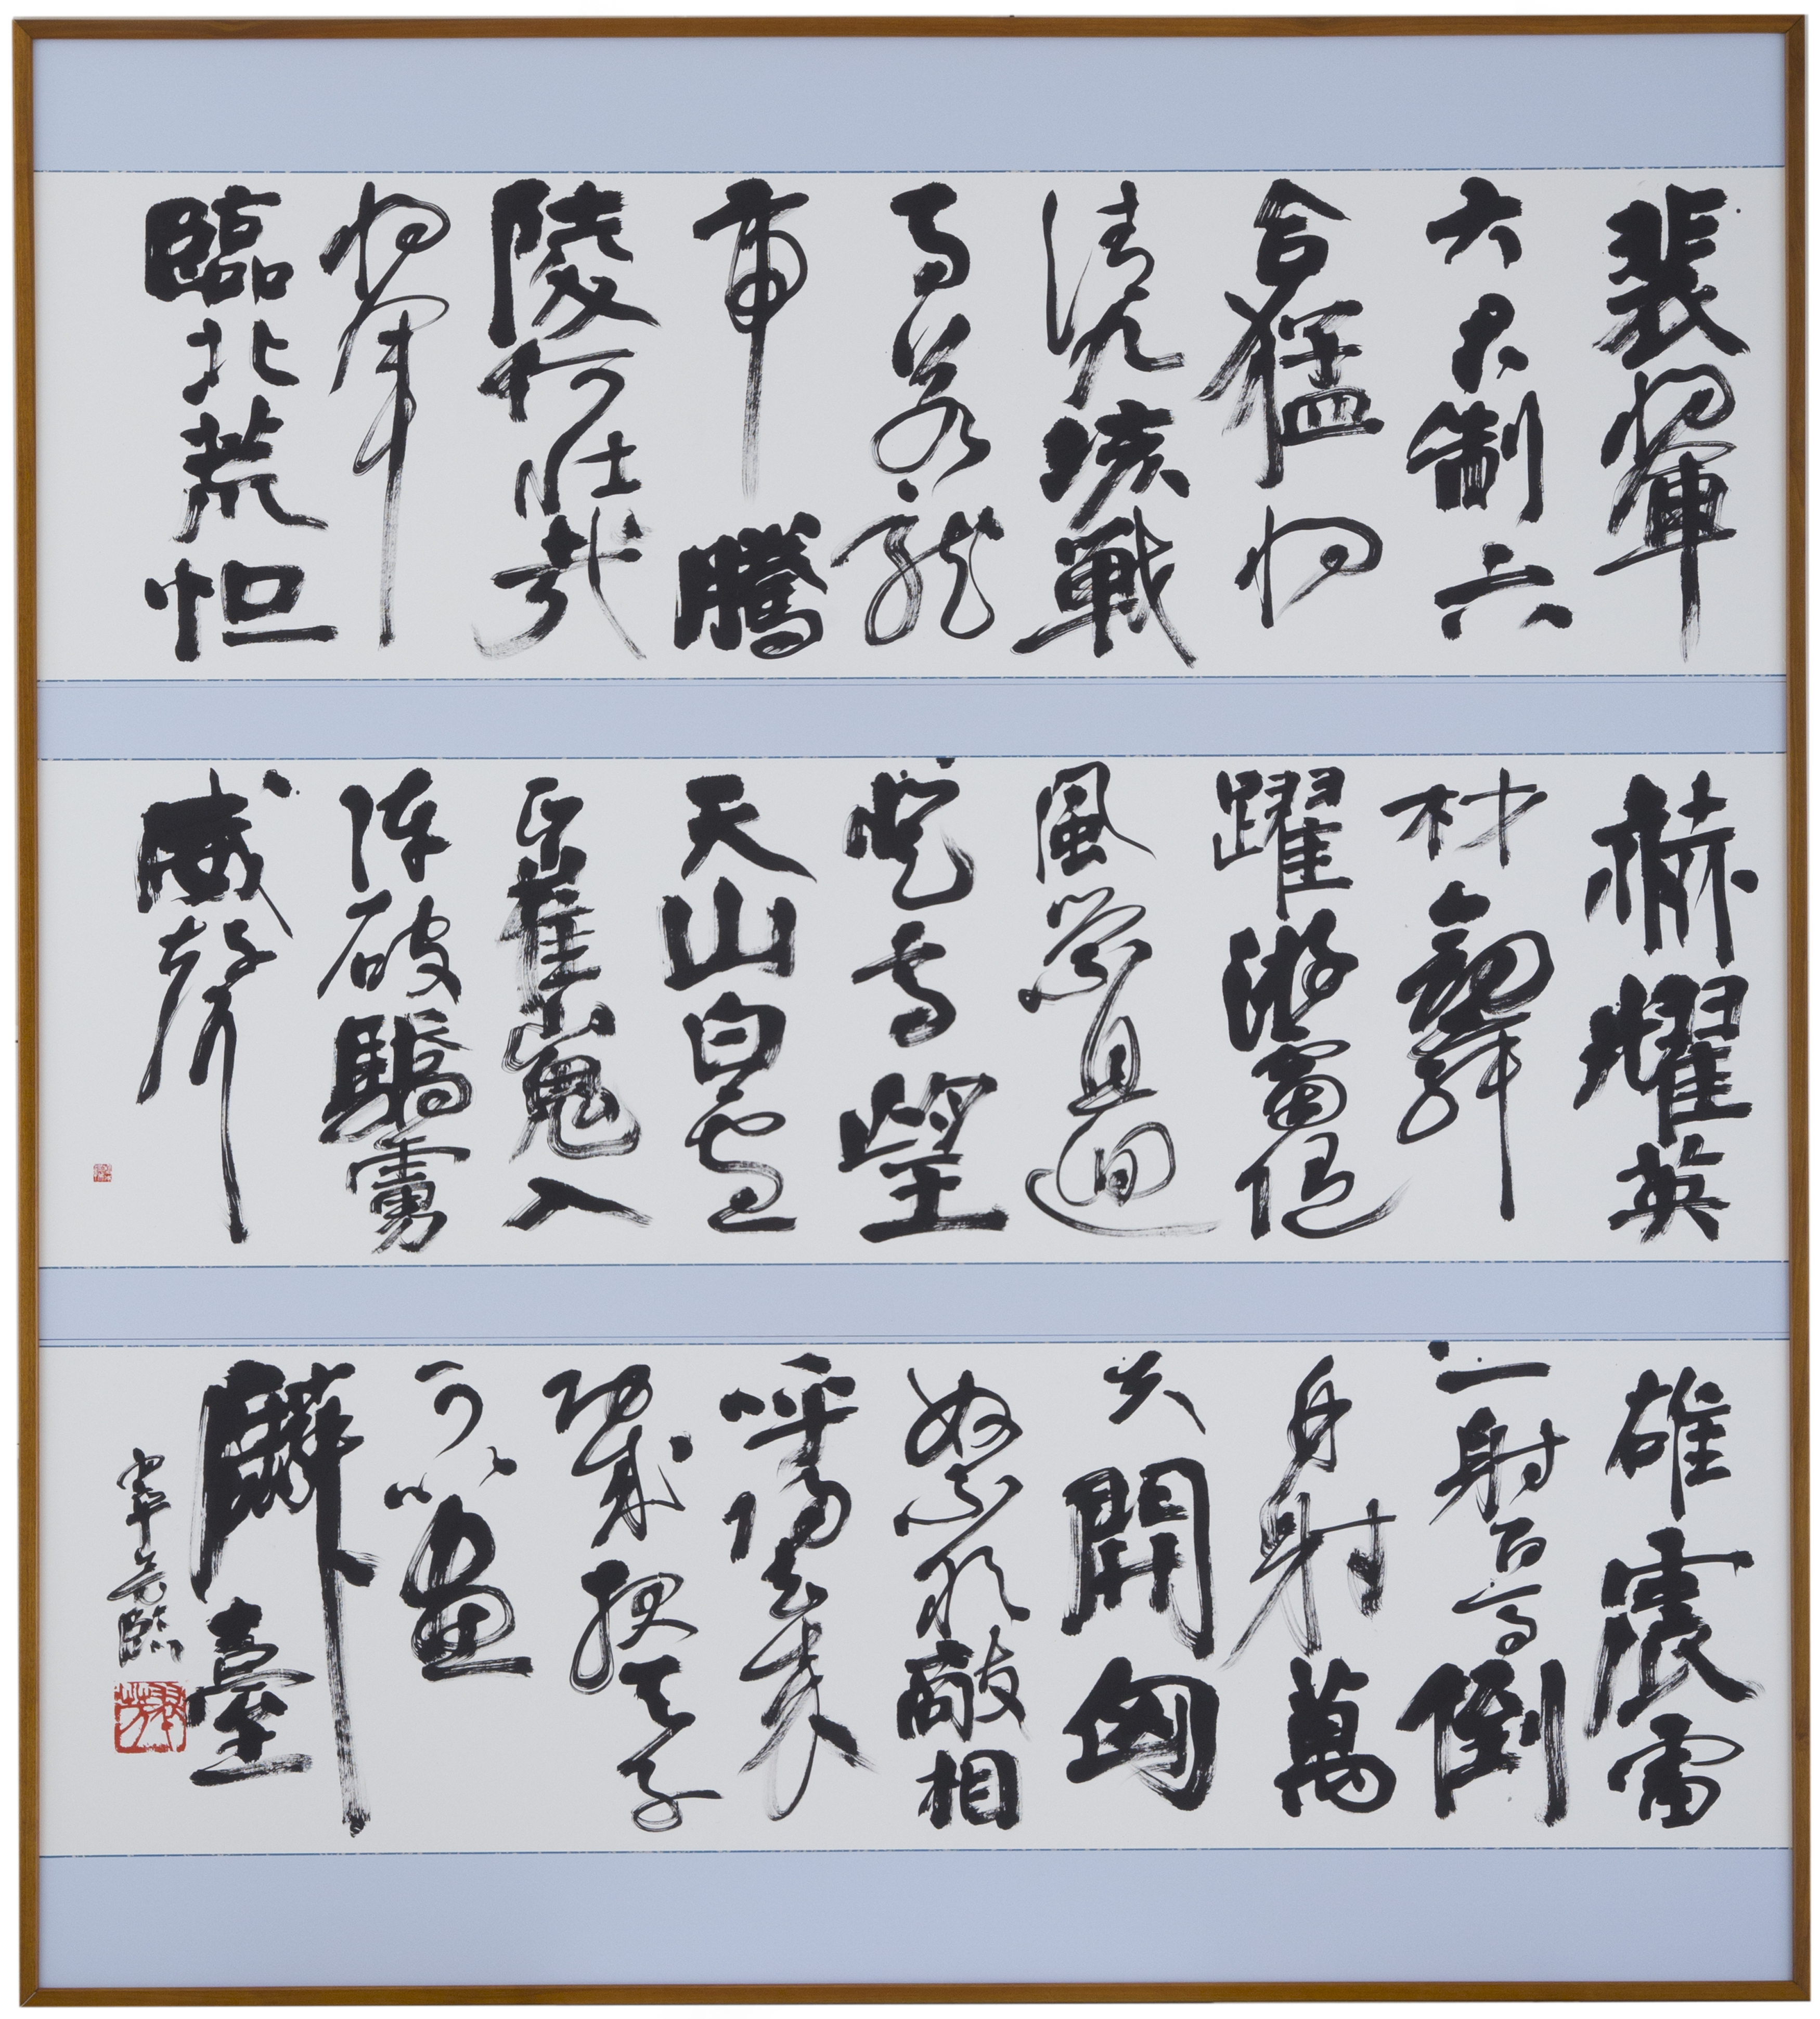 裴將軍
大君制六
合猛將
清九垓戰
馬若龍
虎騰
陵何壯哉
將軍
臨北荒怛
赫耀英
材劔舞
躍游雷隨
風縈且迴
登高望
天山白雲
正崔嵬入
陣破驕虜
威聲
雄震雷
一射百馬倒
再射萬
夫開匈
奴不敢敵相
呼歸去來
功成報天子
可以畫
麟臺
臨